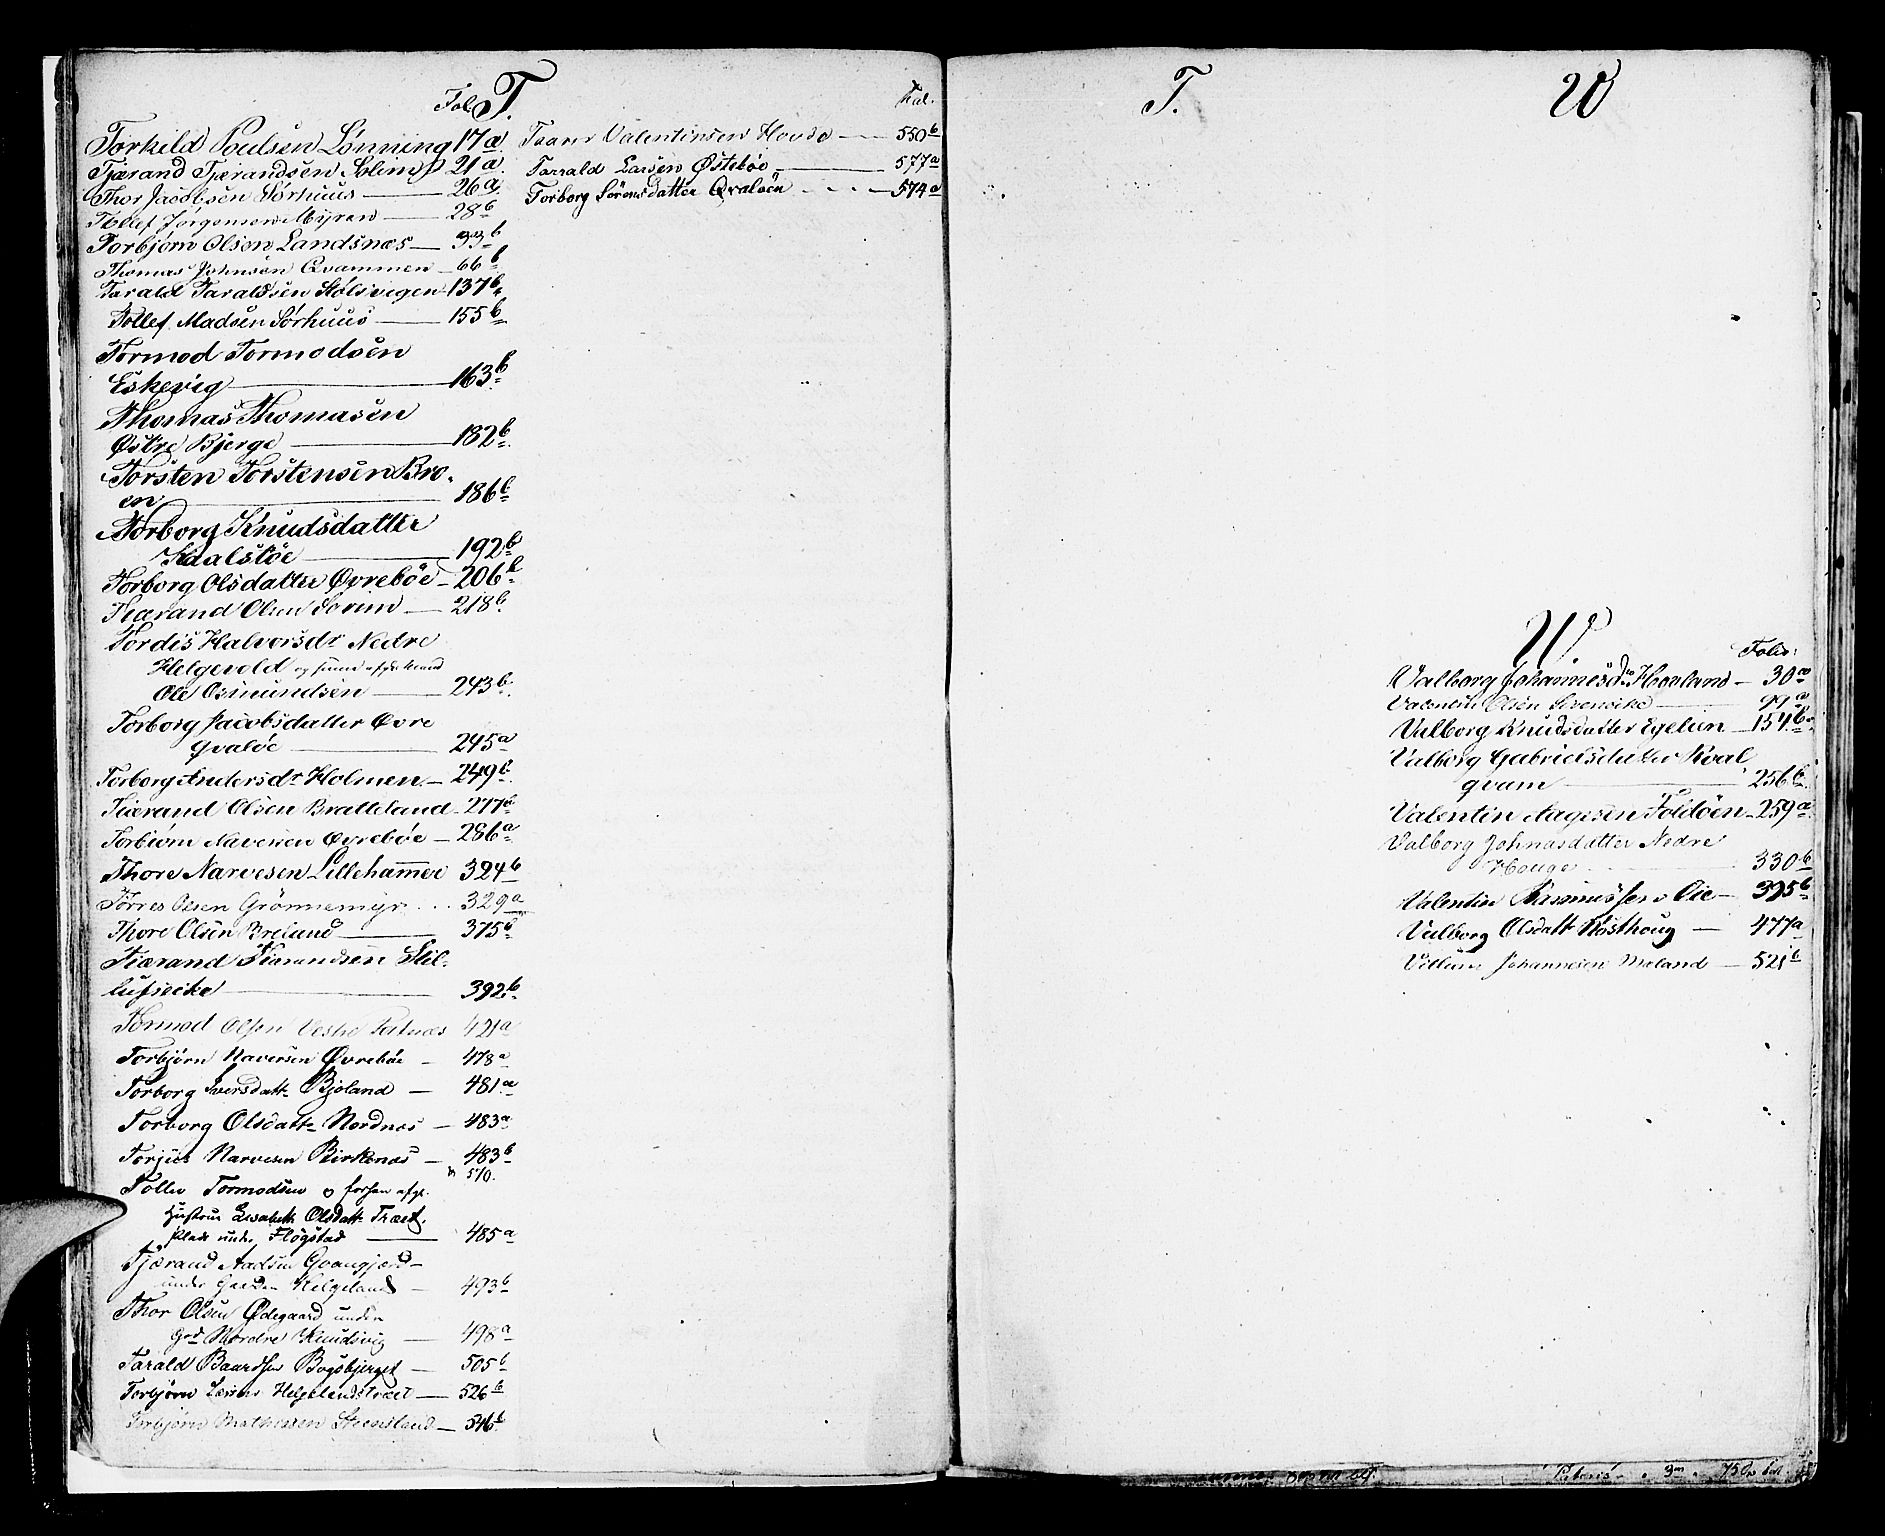 Fol. T.
Torkild Poulsen Lønning 17a.
Tjærand Tjerandsen Solim 21a.
Thor Jacobsen Sørhuus 26a.
Tollef Jørgensen Myren 28b
Torbjørn Olsen Landsnæs 33b
Thomas Johnsen Qvammen 66b
Tarald Taraldsen Stølsvigen 137b.
Tollef Madsen Sørhuus 155b
Tormod Tormodsen
Eskevig 163b
Thomas Thomasen
Østre Bjerge 182b
Torsten Torstensen Bro-
en 186b
Torborg Knudsdatter
Kaalstøe 192b
Torborg Olsdatter Øvrebøe 206b
Tiærand Olsen 218b
Tordis Halvorsdr Nedre
Helgevold og
Ole Osmundsen 243b
Torborg Jacobsdatter Øvre
Qvaløe 245a
Torborg Andersdr Holmen 249b
Tiærand Olsen Bratteland 277b
Torbiørn Naversen Øvrebøe 286a
Thore Narvesen Lillehammer 324b
Torres Olsen Grönnemyr 329a
Thore Olsen Breland 375b
Tiærand Tiærandsen Stil-
392b
Tormod Olsen Vestre 421a
Torbjørn Naversen Øvrebøe 478a
Torborg Iversdattr Bjoland 481a
Torborg Olsdattr Nordnæs 483a
Torjus Narvesen Birkenæs 483b
510.
Tormodsen afg.
Hustrue Elisabeth Olsdattr Træet,
Plads under Fløgstad 485a
Tjærand Aadsen Qvangjærd
under Gaarden Helgeland 493b
Thor Olsen Ødegaard under
Grd Nordre Knudsvig 498a
Tarald Baardsen Bogsbjerget 505b
Torbjørn Larsen Helgelandstræet 526b
Torbjørn Mathiesen Steensland 546b
Fol.
Valentinsen Hovda 550b
Tarrald Larsen Østebøe 577a
Torborg Sørensdatter Qvaløen 574a
T.
W
Folio:
Valborg Johannesdr Hovland 30a
Valentin Olsen Svendeke 99a
Valborg Knudsdatter Egelien 154b
Valborg Gabrielsdatter Kval
qvam 256b
Valentin Aagesen Foldöen 259a
Valborg Johnasdatter Nedre
Houge 330b
Valentin Rasmussen Øie 395b
Valborg Olsdattr Østhoug 477a
Villum Johannesen Meland 521b